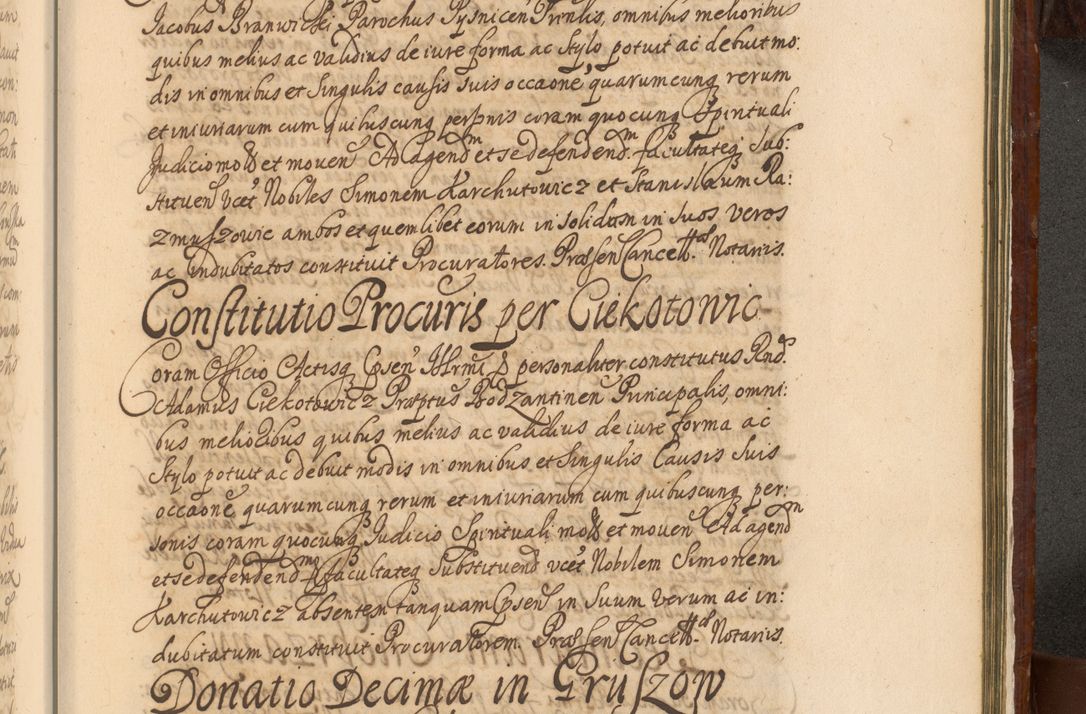 Jacobus Branwicki, Parochus Pysnicen Pnralis, omnibus melioribus
quibus melius ac validius de iure forma ac stylo potuit ac debuit mo:
dis in omnibus et singulis causis suis occaone quarumcunq rerum
et iniuriarum cum quibuscunq persnis coram quocunq Spirituali
Judicio mot et moven Ad agend et se defendend facultateq sub:
stituen vcet Nobiles Simonem Karchutowicz et Stanislaum Ra:
zmuszowic ambos et quemlibet eorum in solidum in suos veros
ac indubitatos constituit Procuratores. Præsen Cancell. Notariis.
Constitutio Procuris per Ciekotowic
Coram Officio Actisq Cpsen personaliter constitutus Rnd.
Adamus Ciekotowicz Præptus Bodzantinen Principalis, omni:
bus melioribus quibus melius ac validius de iure forma ac
stylo potuit ac debuit modis in omnibus et singulis Causis suis
occaone quarumcunq rerum et iniuriarum cum quibuscunq per:
sonis coram quocunq Judicio Spirituali mot et moven Ad agend
et se defendend facultateq substituend vcet Nobilem Simonem
Karchutowicz absentem tanquam Cpsen in suum verum ac in:
dubitatum constituit Procuratorem. Præsen Cancell. Notariis.
Donatio Decimæ in Gruszow